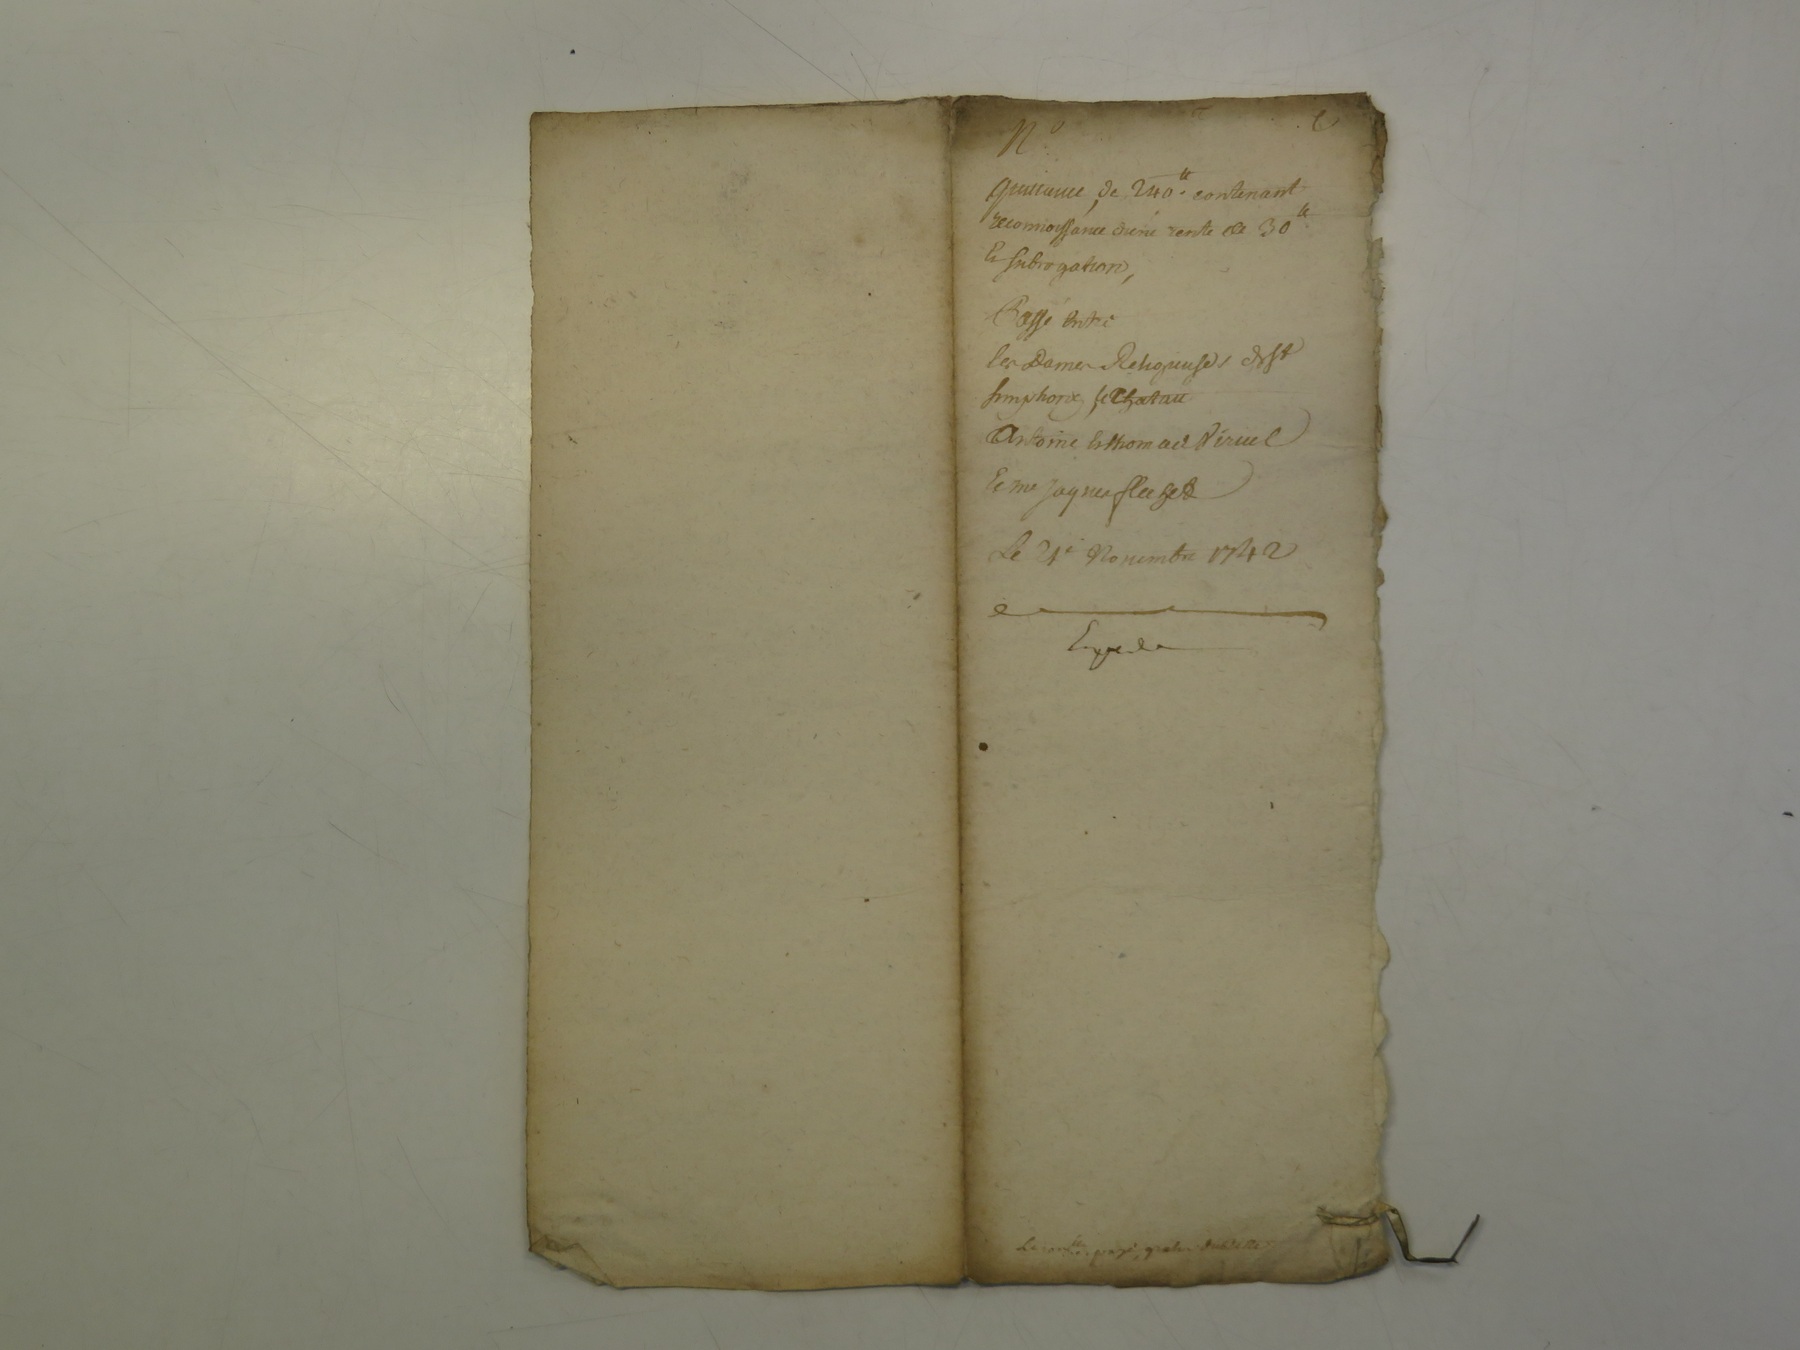 N°
quittance, de 240ᵗᵗ contenant
reconnoissance d'une rente de 30ᵗᵗ
Et subrogation,
Passé Entre
les Dames Religieuses de St
simphorie le Chatau
Antoine Et thomas
Et me Jaques
Le 21e Novembre 1742
Expedie